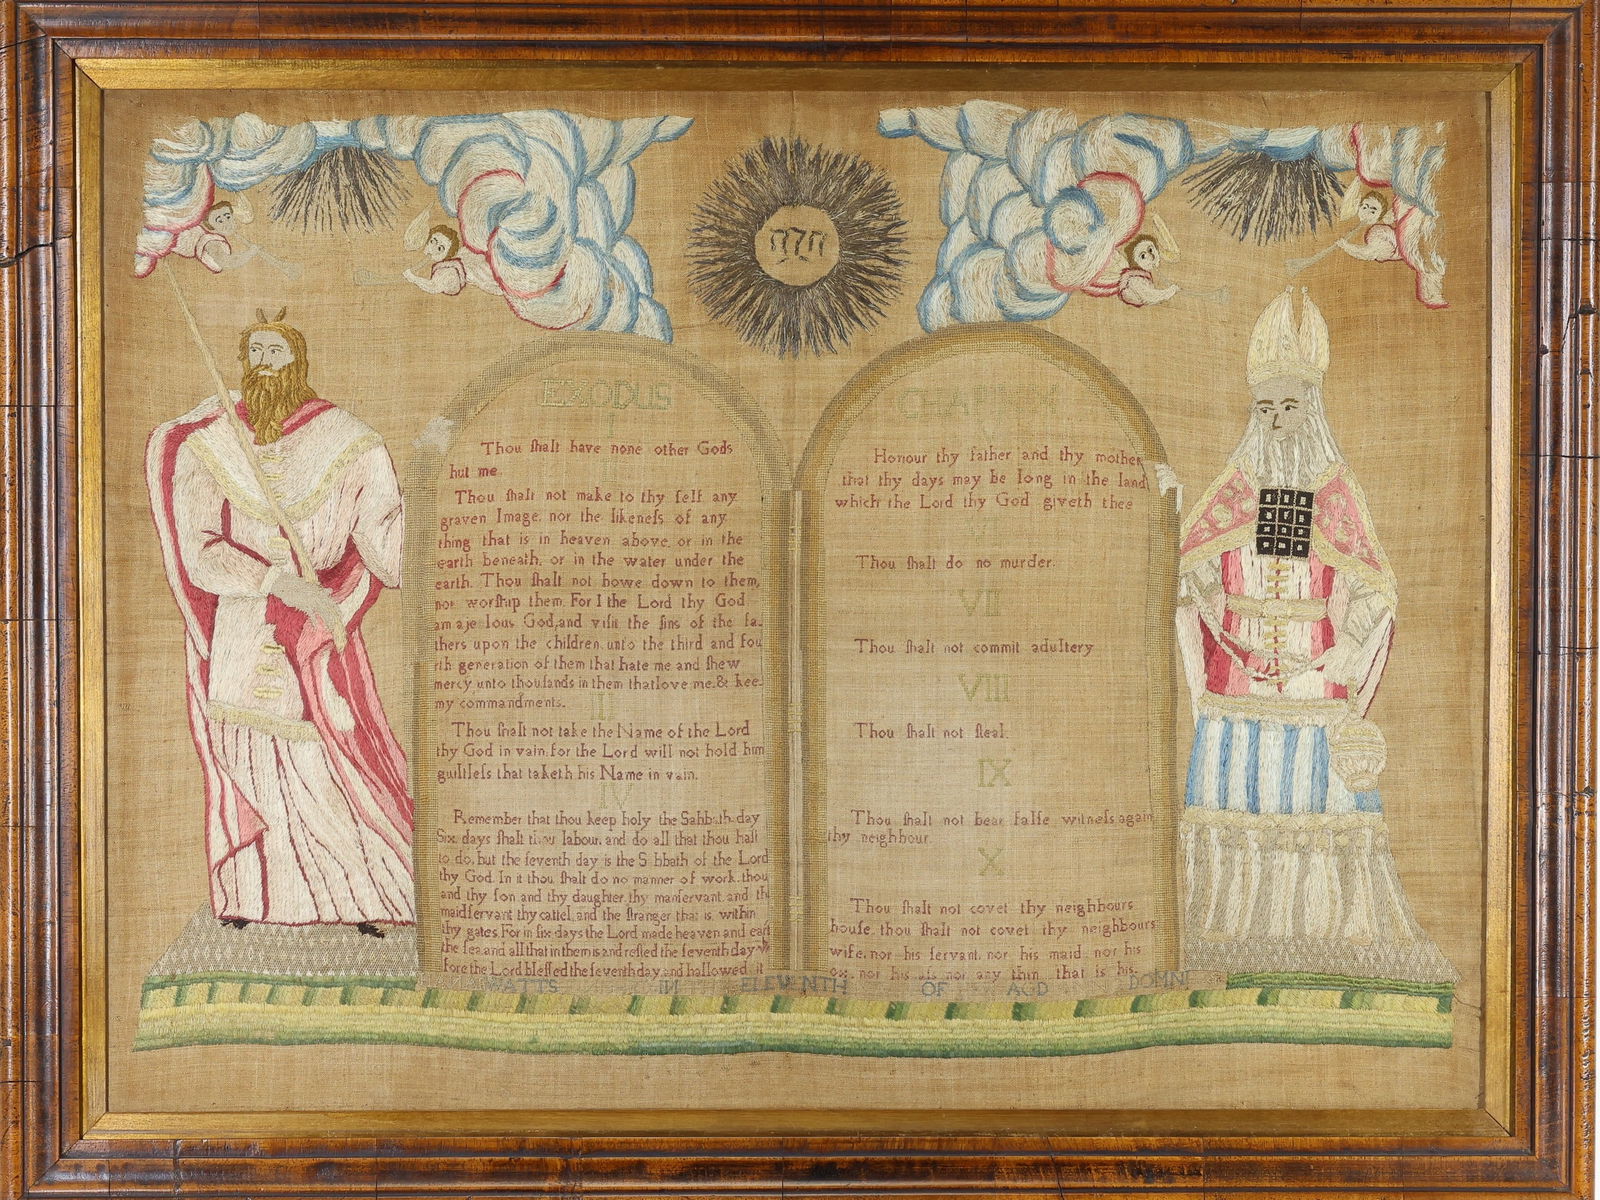 יהוה
EXODUS
CHAP XX
I
Thou ſhalt have none other Gods
but me.
Thou ſhalt not make to thy ſelf any
graven Image, nor the likeneſs of any
thing that is in heaven above, or in the
earth beneath, or in the water under the
earth. Thou ſhalt not bowe down to them,
nor worſhip them. For I the Lord thy God
am a je lous God, and viſit the ſins of the fa-
thers upon the children, unto the third and fou
rth generation of them that hate me and ſhew
mercy unto thouſands in them that love me & kee-
my commandments.
II
Thou ſhalt not take the Name of the Lord
thy God in vain, for the Lord will not hold him
guiltleſs that taketh his Name in vain.
IV
Remember that thou keep holy the Sabbath day
Six days ſhalt thou labour, and do all that thou haſt
to do, but the ſeventh day is the S bbath of the Lord
thy God. In it thou ſhalt do no manner of work, thou
and thy ſon and thy daughter, thy manſervant, and th
maidſervant thy cattel, and the ſtranger that is within
thy gates. For in ſix days the Lord made heaven and eart
the ſea, and all that in them is and reſted the ſeventh day
fore the Lord bleſſed the ſeventh day, and hallowed it
V
Honour thy father and thy mother
that thy days may be long in the land
which the Lord thy God giveth thee
Thou ſhalt do no murder.
VII
Thou ſhalt not commit adultery
VIII
Thou ſhalt not ſteal.
IX
Thou ſhalt not bear falſe witneſs again
thy neighbour.
X
Thou ſhalt not covet thy neighbours
houſe, thou ſhalt not covet thy neighbours
wife, nor his ſervant, nor his maid, nor his
ox, nor his aſs nor any thin that is his.
WATTS IN ELEVENTH OF AGD DOMNI